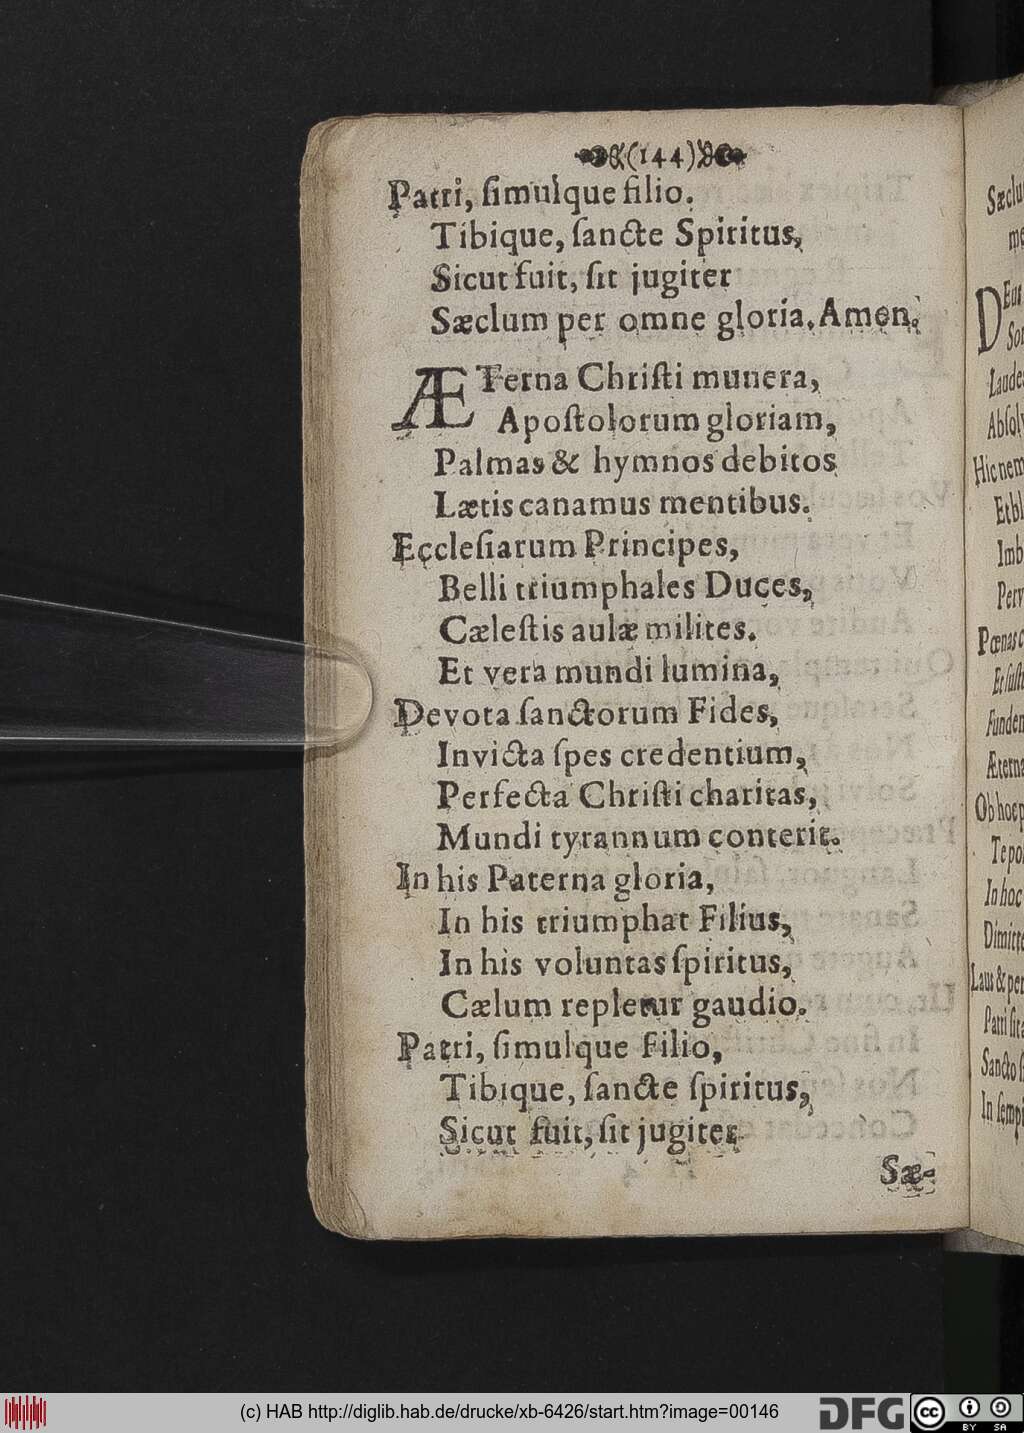 (144)
Patri, ſimulque filio.
Tibique, ſancte Spiritus,
Sicut fuit, ſit jugiter
Sæclum per omne gloria. Amen.
ÆTerna Chriſti munera,
Apoſtolorum gloriam,
Palmas & hymnos debitos
Lætis canamus mentibus.
Eccleſiarum Principes,
Belli triumphales Duces,
Cæleſtis aulæ milites.
Et vera mundi lumina,
Devota ſanctorum Fides,
Invicta ſpes credentium,
Perfecta Chriſti charitas,
Mundi tyrannum conterit.
In his Paterna gloria,
In his triumphat Filius,
In his voluntas ſpiritus,
Cælum repletur gaudio.
Patri, ſimulque Filio,
Tibique, ſancte ſpiritus,
Sicut fuit, ſit jugiter
Sæ-
Sæclu
me
DEus
Sor
Laude
Abſolv
Hic nem
Et bl
Imb
Perv
Pœnas c
Et fuſtu
Funden
Æterna
Ob hoc p
Te po
In hoc
Dimitte
Laus & per
Patri ſit
Sancto ſ
In ſempi
(c) HAB http://diglib.hab.de/drucke/xb-6426/start.htm?image=00146
DFG
cc
BY SA